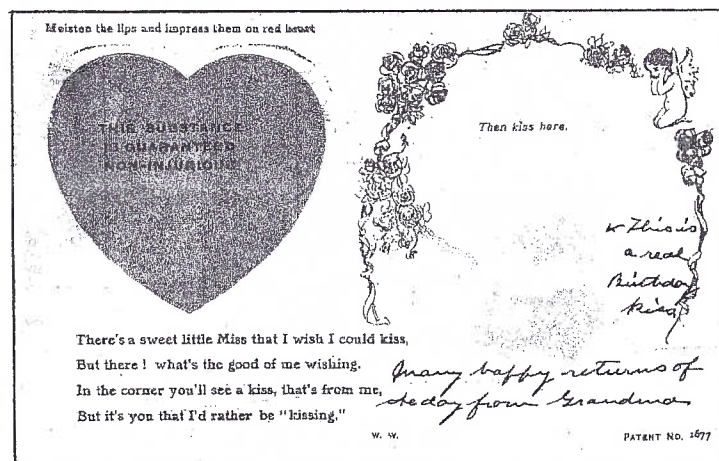 Moisten the lips and impress them on red heart
THIS SUBSTANCE
IS GUARANTEED
NON-INJURIOUS
Then kiss here.
This is
a real
Birthday
kiss
There's a sweet little Miss that I wish I could kiss,
But there! what's the good of me wishing.
In the corner you'll see a kiss, that's from me,
But it's you that I'd rather be "kissing."
Many happy returns of
the day from Grandma
W. W.
PATENT NO. 1677